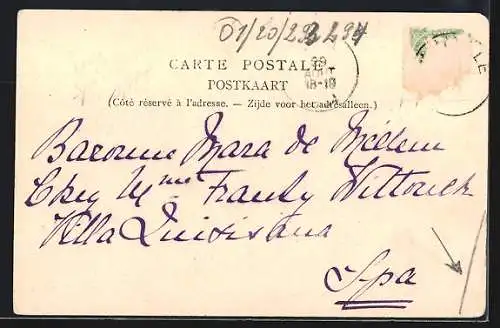 01/20/293 294
CARTE POSTALE
POSTKAART
(Côté réservé à l'adresse. — Zijde voor het adres alleen.)
29
AOUT
18-19
LE
Baronne Mara de
Chez Mme Frantz Wittouck
Villa Quisisana
Spa